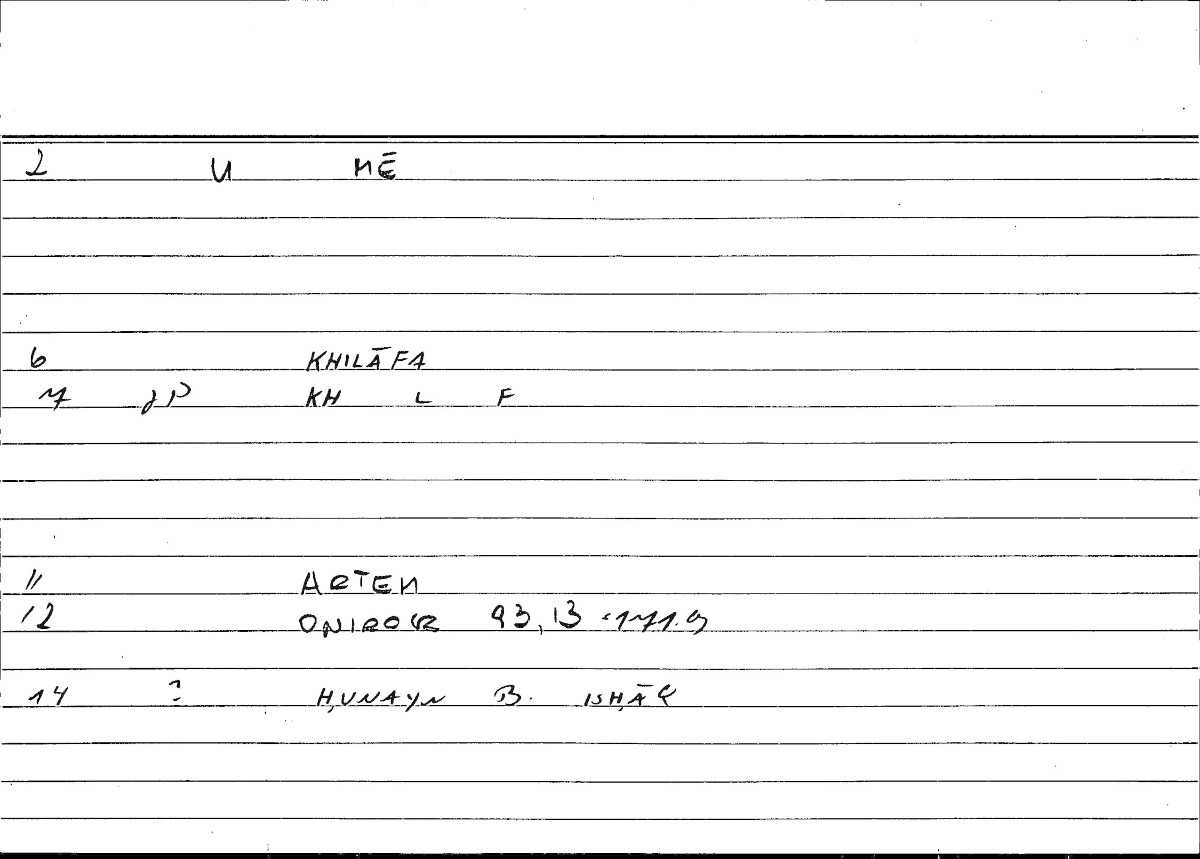 2 U MĒ
6 KHILĀFA
7 gP KH L F
11 ARTEM
12 ONIROCR 93,13 =171.9
14 ? ḤUNAYN B. ISḤĀQ